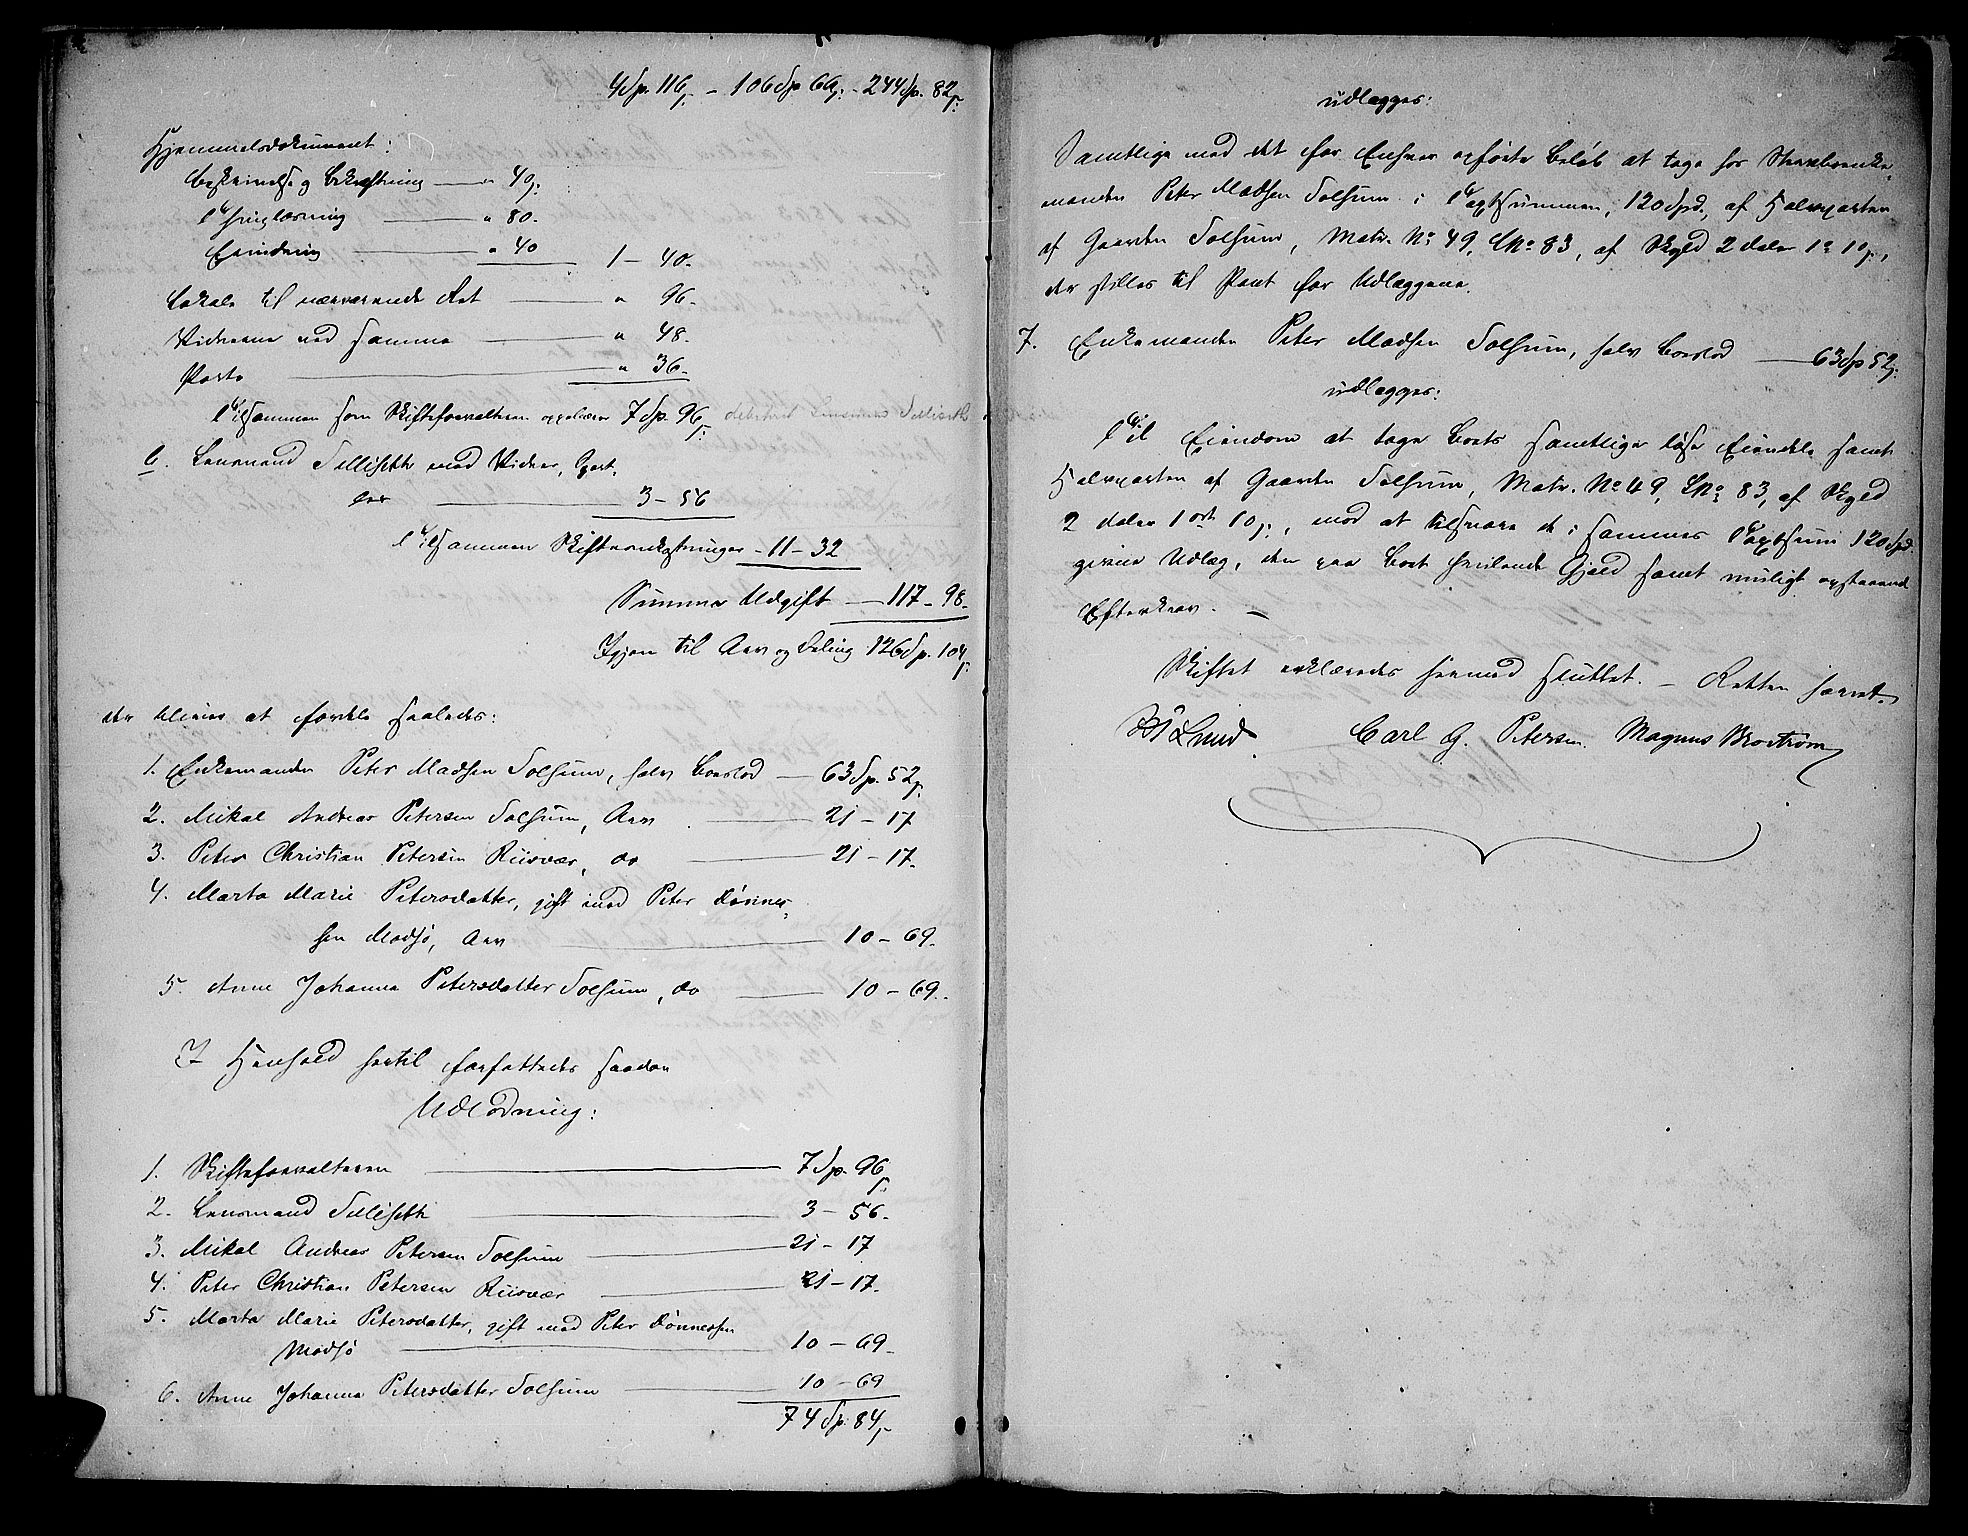 4 Sp. 116 – 106 Sp 66 – 244 Sp. 82
Hjemmelsdokument:
Beskrivelse og Bekræftning — " 40
Thinglæsning — " 80.
Erindring — " 40 1 – 40.
Lokale til nærværende Ret — " 96.
Vidnerne ved samme — " 48.
Porto — " 36.
Tilsammen som Skifteforvalteren oppebærer 7 Sp. 96
b. Lensmand Sellseth med Vidner,
3 – 56
Tilsammen Skifteomkostninger – 11 – 32
Summa Udgift — 117 – 98.
Igjen til Arv og Deling 126 Sp. 104
der bliver at fordele saaledes:
1. Enkemanden Peter Madsen Solhum, halv Boeslod — 63 Sp. 52
2. Mikal Andreas Petersen Solhum, Arv — 21 – 17
3. Peter Christian Petersen Riisvær, do — 21 – 17.
4. Marta Marie Petersdatter, gift med Peter Dønnes-
sen Madsø, Arv — 10 – 69.
5. Anne Johanna Petersdatter Solhum, do — 10 – 69.
I Henhold hertil forfattedes saadan
Udlodning:
1. Skifteforvalteren — 7 Sp. 96
2. Lensmand Sellseth — 3 – 56.
3. Mikal Andreas Petersen Solhum — 21 – 17
4. Peter Christian Petersen Riisvær — 21 – 17.
5. Marta Marie Petersdatter, gift med Peter Dønnessen
Madsø — 10 – 69.
6. Anne Johanna Petersdatter Solhum — 10 – 69
74 Sp. 84
udlægges:
Samtlige med det for Enhver opførte Beløb at tage hos Stervboenke-
manden Peter Madsen Solhum i Taxtsummen, 120 Spd., af Halvparten
af Gaarden Solhum, Matr. No 49, LNo 83, af Skyld 2 daler 1 o 10,
der stilles til Pant for Udlæggene.
7. Enkemanden Peter Madsen Solhum, halv Boeslod — 63 Sp 52
udlægges:
Til Eiendom at tage Boets samtlige løse Eiendele samt
Halvparten af Gaarden Solhum, Matr. No 49, LNo 83, af Skyld
2 daler 1 ort 10, mod at tilsvare de i sammes Taxtsum 120 Spd.
givne Udlæg, den paa Boet hvilende Gjæld samt muligt opstaaende
Efterkrav. –
Skiftet erklæredes hermed sluttet. – Retten hævet.
Lund Carl G. Petersen. Magnus Brostrøm